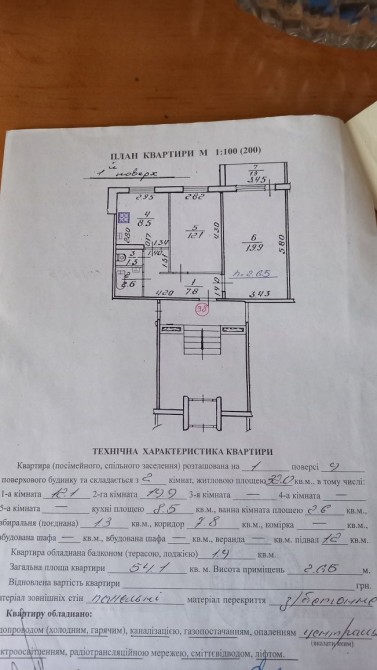 ПЛАН КВАРТИРИ М 1:100 (200)
1й поверх
7
1.9
345
295
262
4
8.5
5
12.1
6
19.9
280
430
580
134
140
131
3
1.3
2
2.6
1
7.8
h=2.65
420
140
343
38
ТЕХНІЧНА ХАРАКТЕРИСТИКА КВАРТИРИ
Квартира (посімейного, спільного заселення) розташована на 1 поверсі 9
поверхового будинку та складається з 2 кімнат, житловою площею 32.0 кв.м., в тому числі:
1-а кімната 12.1 2-га кімната 19.9 3-я кімната — 4-а кімната —
5-а кімната — кухні площею 8.5 кв.м., ванна кімната площею 2.6 кв.м.,
вбиральня (поєднана) 1.3 кв.м., коридор 7.8 кв.м., комірка — кв.м.,
вбудована шафа — кв.м., вбудована шафа — кв.м., веранда — кв.м. підвал 12 кв.м.
Квартира обладнана балконом (терасою, лоджією) 1.9 кв.м.
Загальна площа квартири 54.1 кв. м. Висота приміщень 2.65 м.
Відновлена вартість квартири грн.
матеріал зовнішніх стін панельні матеріал перекриття з/бетонне
Квартиру обладнано:
водопроводом (холодним, гарячим), каналізацією, газопостачанням, опаленням централь
(вказати яким)
електроосвітленням, радіотрансляційною мережею, сміттєвідводом, ліфтом.